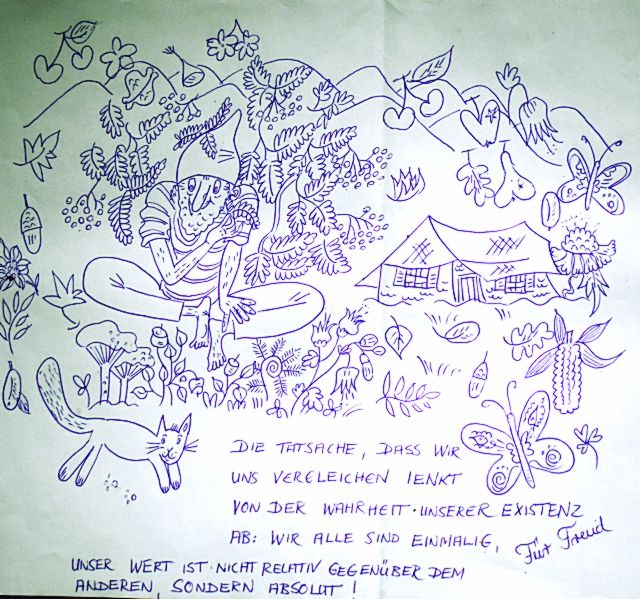 DIE TATSACHE, DASS WIR
UNS VERGLEICHEN LENKT
VON DER WAHRHEIT UNSERER EXISTENZ
AB: WIR ALLE SIND EINMALIG,
Für Freud
UNSER WERT IST NICHT RELATIV GEGENÜBER DEM
ANDEREN, SONDERN ABSOLUT!